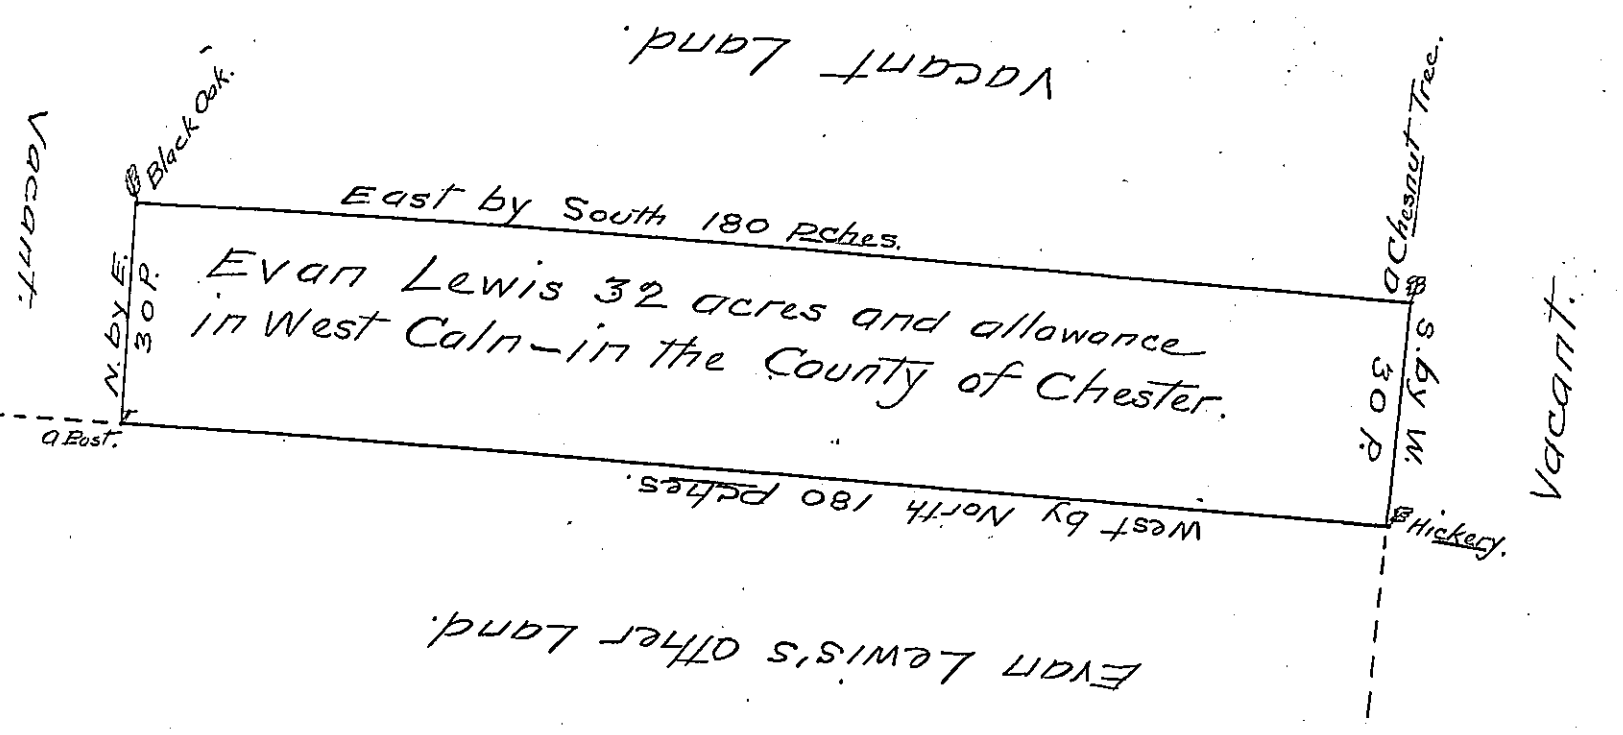 Vacant Land.
Vacant.
Black Oak.
a Chesnut Tree.
East by South 180 Pches.
N. by E.
30 P.
Evan Lewis 32 acres and allowance
in West Caln - in the County of Chester.
S. by W.
30 P.
Vacant.
a Post.
West by North 180 pches.
Hickery.
Evan Lewis's other Land.